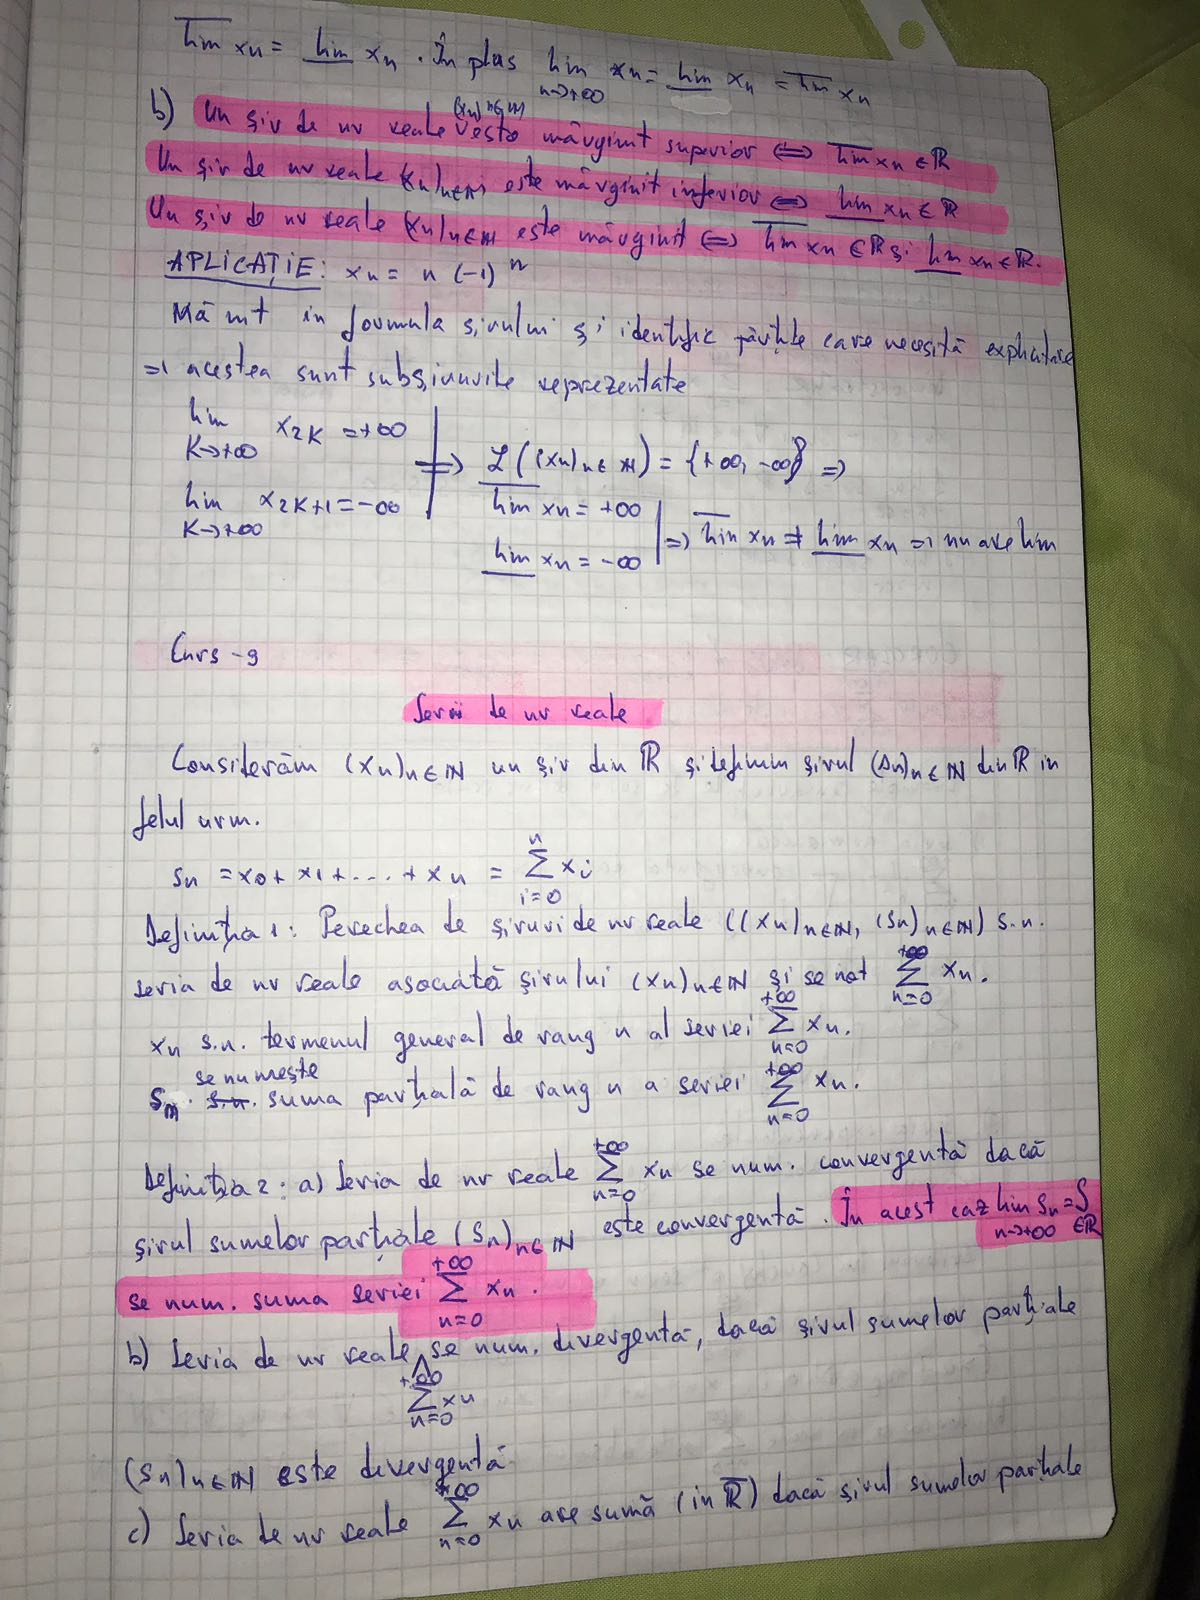 lim xn = lim xn. În plus lim n→+∞ xn = lim xn = lim xn
b) Un șir de nr reale (xn) n∈ℕ este mărginit superior ⟺ lim xn ∈ ℝ
Un șir de nr reale (xn)n∈ℕ este mărginit inferior ⟺ lim xn ∈ ℝ
Un șir de nr reale (xn)n∈ℕ este mărginit ⟺ lim xn ∈ ℝ și lim xn ∈ ℝ.
APLICAȚIE: xn = n (-1)^n
Mă uit in formula șirului și identific părțile care necesită explicitare
=) acestea sunt subșirurile reprezentate
lim K→+∞ x2K = +∞
lim K→+∞ x2K+1 = -∞
⟹ L((xn)n∈ℕ) = {+∞, -∞} =)
lim xn = +∞
lim xn = -∞
=) lim xn ≠ lim xn =) nu are lim
Curs -9
Serii de nr reale
Considerăm (xn)n∈ℕ un șir din ℝ și definim șirul (sn)n∈ℕ din ℝ in
felul urm.
sn = x0 + x1 + ... + xn = ∑ i=0 n xi
Definiția 1: Perechea de șiruri de nr reale ((xn)n∈ℕ, (sn)n∈ℕ) s.n.
seria de nr reale asociată șirului (xn)n∈ℕ și se not ∑ n=0 +∞ xn.
xn s.n. termenul general de rang n al seriei ∑ n=0 +∞ xn.
se numește
sn. s.n. suma parțială de rang n a seriei ∑ n=0 +∞ xn.
Definiția 2: a) Seria de nr reale ∑ n=0 +∞ xn se num. convergentă dacă
șirul sumelor parțiale (sn)n∈ℕ este convergentă. În acest caz lim n→+∞ sn = S ∈ℝ
se num. suma seriei ∑ n=0 +∞ xn.
b) Seria de nr reale ∑ n=0 +∞ xn se num. divergentă, dacă șirul sumelor parțiale
(sn)n∈ℕ este divergentă
c) Seria de nr reale ∑ n=0 +∞ xn are sumă (in ℝ) dacă șirul sumelor parțiale